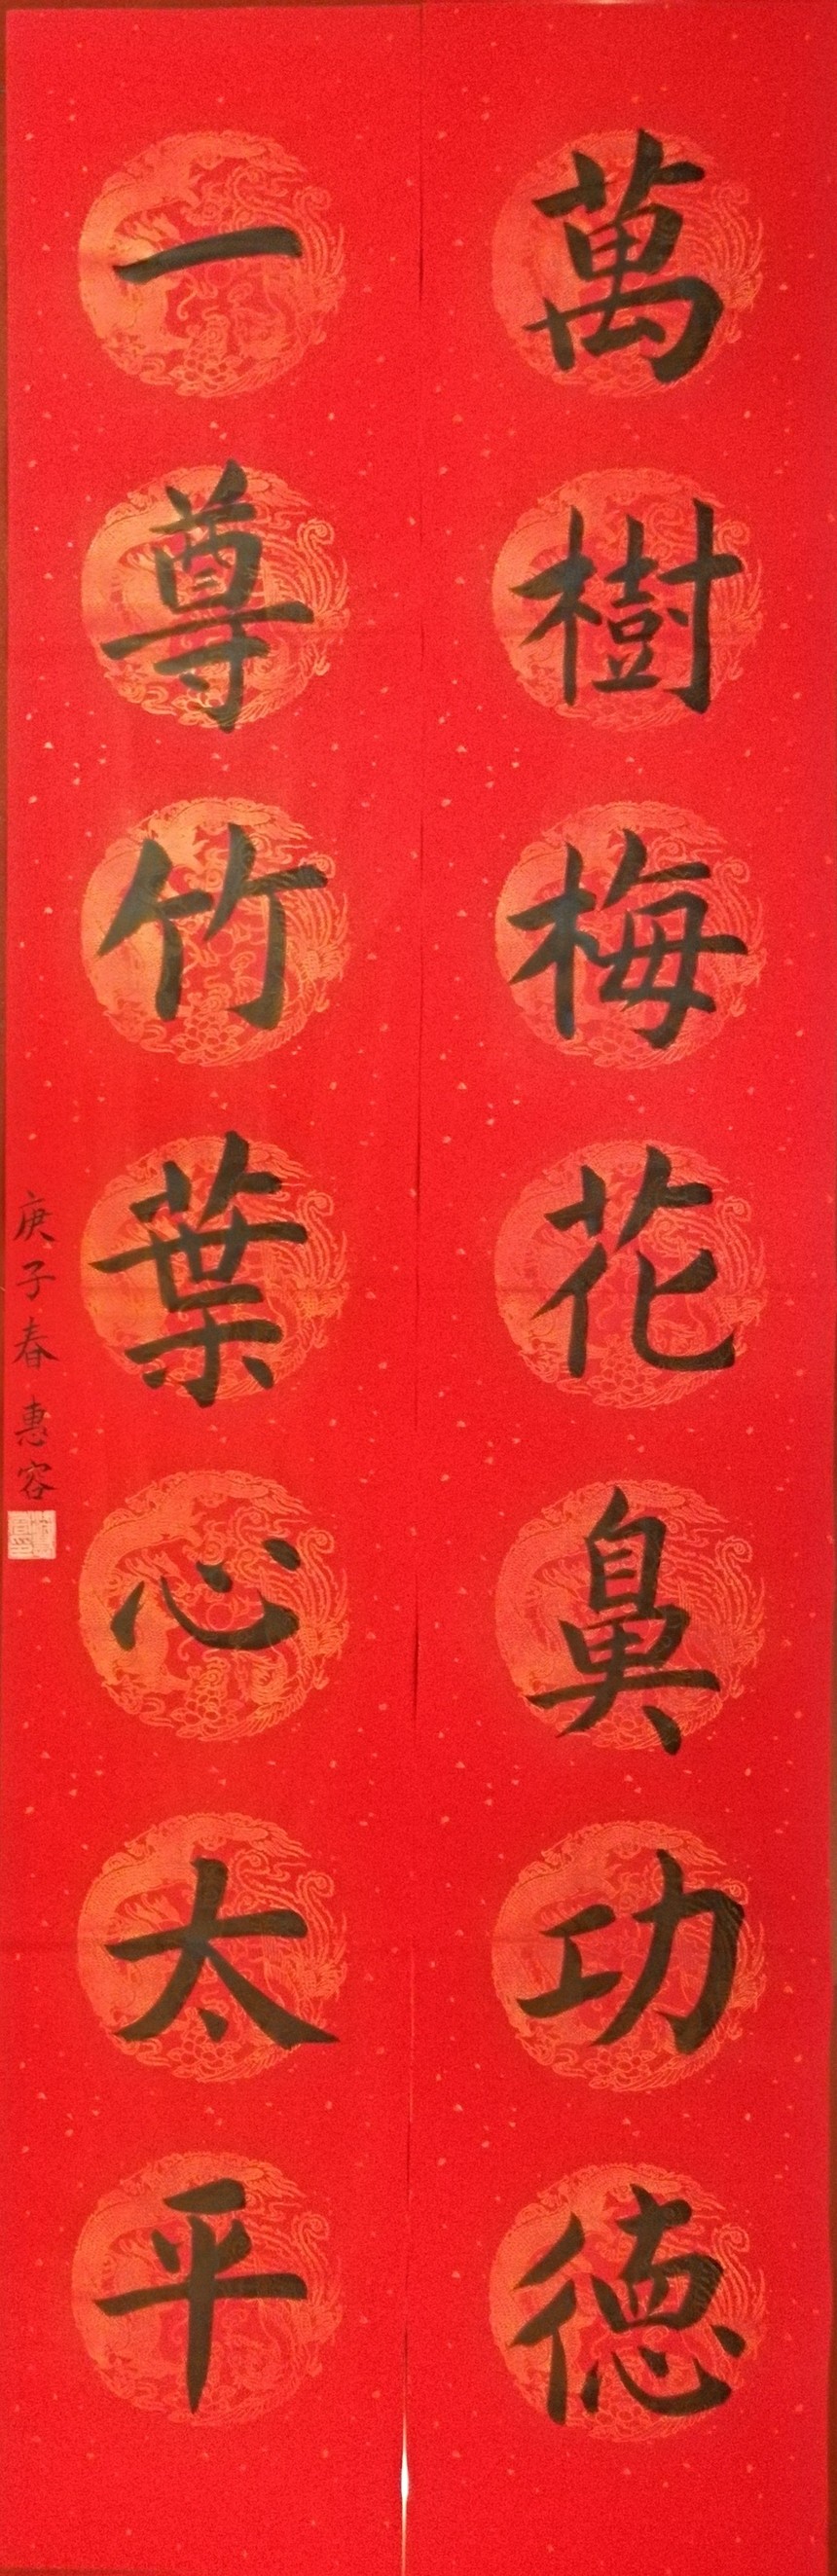 萬樹梅花鼻功德
一尊竹葉心太平
庚子春 惠容